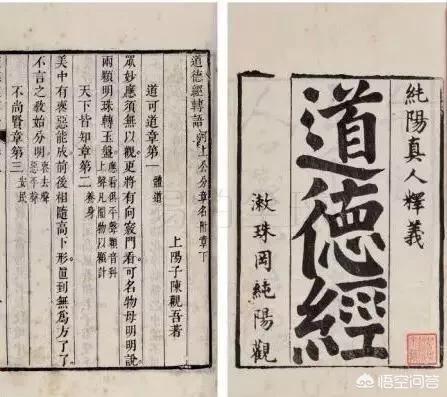 純陽真人釋義
道德經
漱珠岡純陽觀
道德經轉語 河上公分章名附章下
上陽子陳觀吾著
道可道章第一 體道
眾妙應須無以觀更將有向竅門看可名物母明明說
兩顆明珠轉玉盤 應看俱平聲顆音科上聲凡圓物以顆計
天下皆知章第二 養身
美中有喪惡能成前後相隨高下形直到無為方了了
不言之教始分明 喪去聲惡平聲
不尚賢章第三 安民
悟空问答